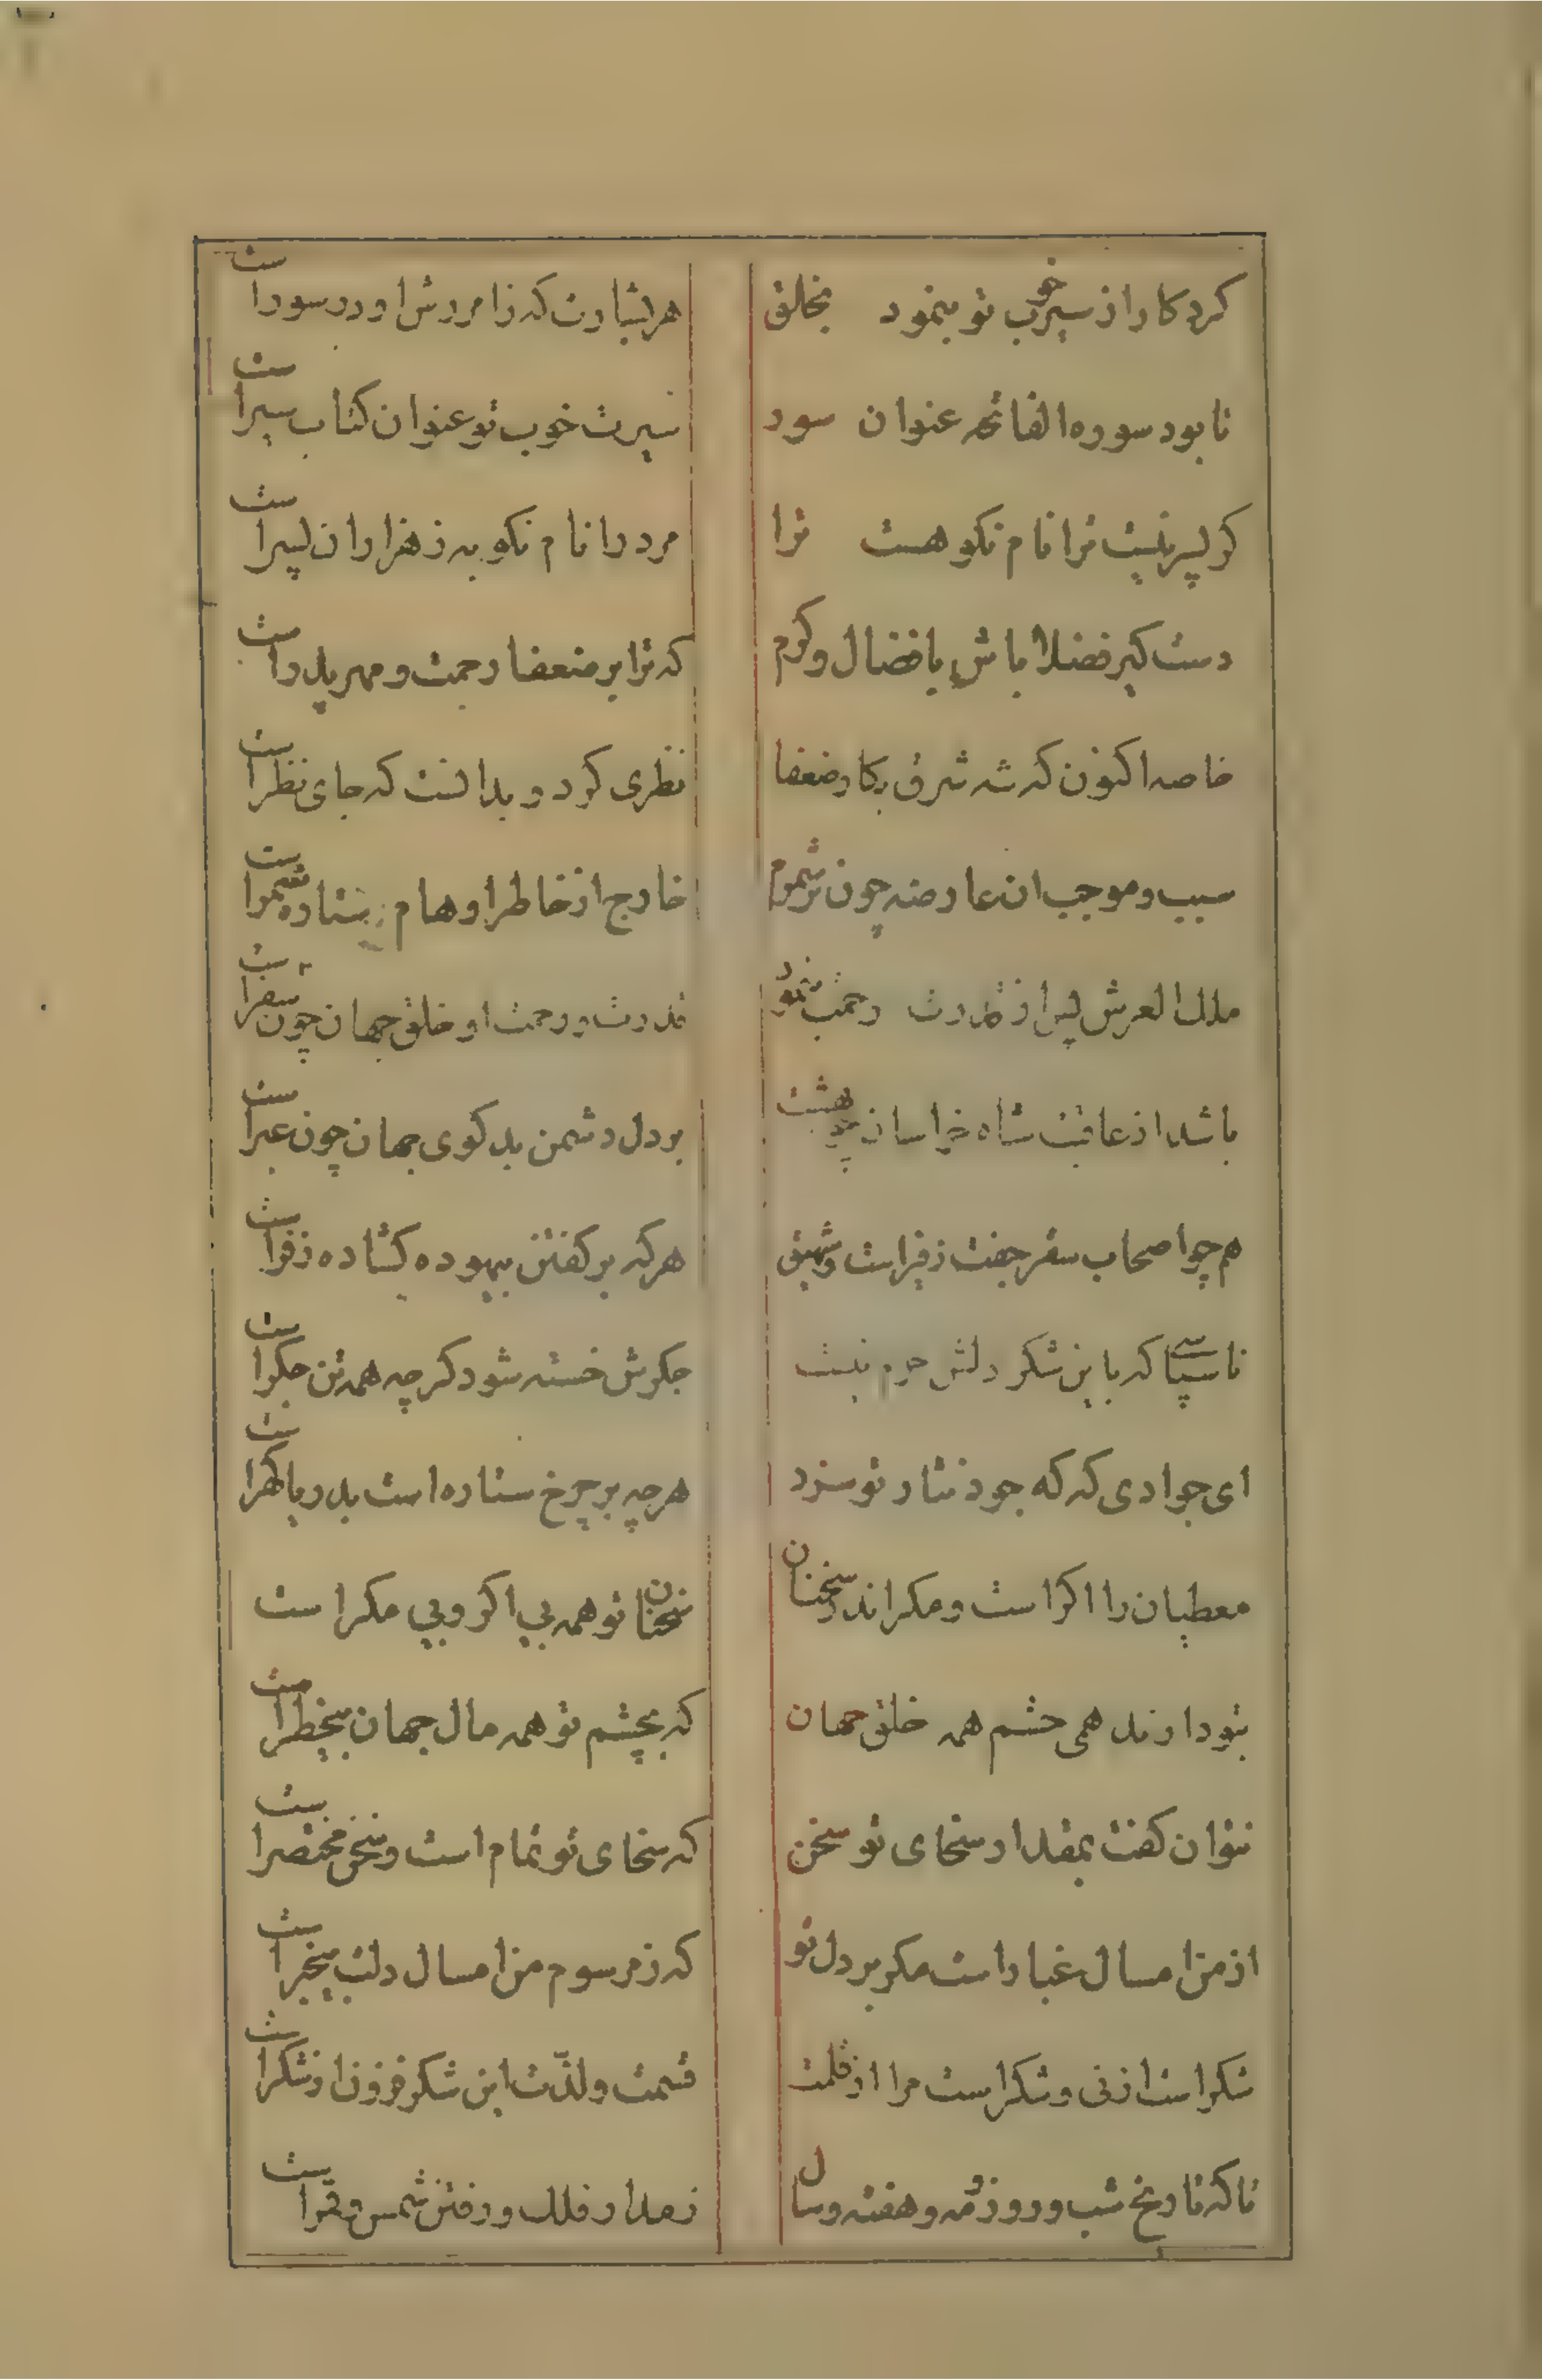 کردکار از سیرت خوب تو بنمود بخالق هر بشارت که زامرزش او در سوراست
تا بود سوره الفاتحه عنوان سور سیرت خوب تو عنوان کتاب سیراست
کر پسر نیست ترا نام نکو هست ترا مرد را نام نکو به ز هزاران پسراست
دست کیر فضلا باش بافضال وکرم که ترا بر ضعفا رحمت و مهر پدراست
خاصه اکنون که شه شرق بکار ضعفا نظری کرد و بدانست که جای نظراست
سبب و موجب ان عارضه چون برشمرم خارج از خاطر اوهام ستاره شمراست
ملک العرش پس از قدرت رحمت بنمود قدرت و رحمت او خلق جهان چون سفراست
باشد از عاقبت شاه خراسان بهشت بر دل دشمن بد کوی جهان چون عبراست
هم چو اصحاب سقر جفت زفیراست و شهیق هرکه بر کفتن بیهوده کشاده زفراست
ناسپاسی که باین شکر دلش خرم نیست جکرش خسته شود کرچه همه تن جکراست
ای جوادی که که جود نثار تو سزد هرچه بر چرخ ستاره است بدریا کهراست
معطیان را اکراست و مکر اندر سخنان سخنان تو همه بی اکر و بی مکراست
بتو دارند همی چشم همه خلق جهان که بچشم تو همه مال جهان بیخطراست
نتوان کفت بمقدار سخای تو سخن که سخای تو تمام است و سخن مختصراست
از من امسال غباراست مکر بر دل تو که ز مرسوم من امسال دلت بیخبراست
شکراست از نی و شکراست مرا از قلمت قیمت و لذّت این شکر فزون از شکراست
تا که تاریخ شب و روز و مه و هفته و سال ز مدار فلک و رفتن شمس و قمراست